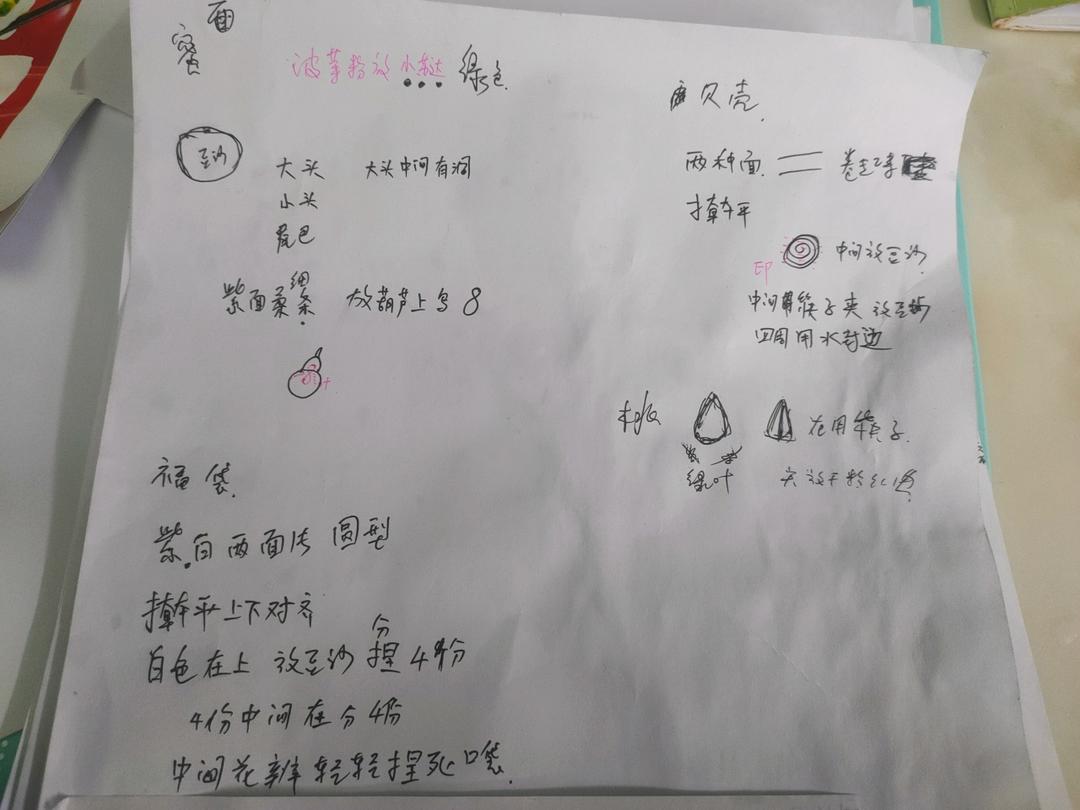 面
蜜
波菜粉放小苏达 绿色
豆沙
大头 大头中间有洞
小头
尾巴
紫面桑细条 放葫芦上乌8
福袋
紫.白两面片 圆型
擀平上下对齐
白色在上 放豆沙分捏4份
4份中间在分4份
中间花辨轻轻捏死口袋.
贝壳.
两种面. 卷起来
擀平
中间放豆沙.
印
中间用筷子夹 放豆沙
四周用水封边
桃 在用筷子.
绿叶 夹放干粉红色